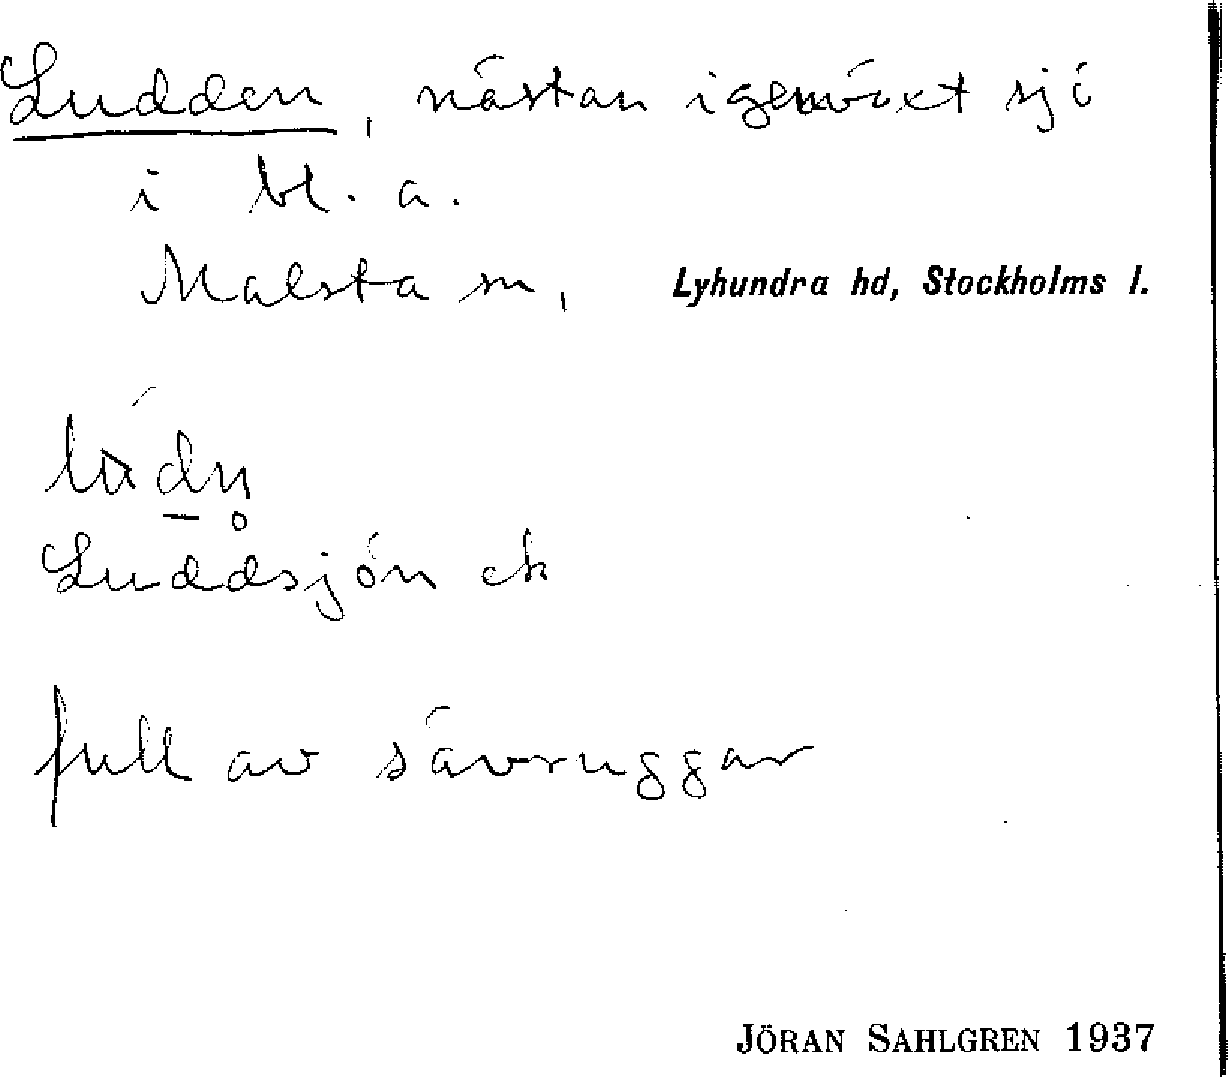 Ludden, nästan igenväxt sjö
i bl. a.
Malsta sn, Lyhundra hd, Stockholms l.
Luddsjön ek
full av sävruggar
JÖRAN SAHLGREN 1937